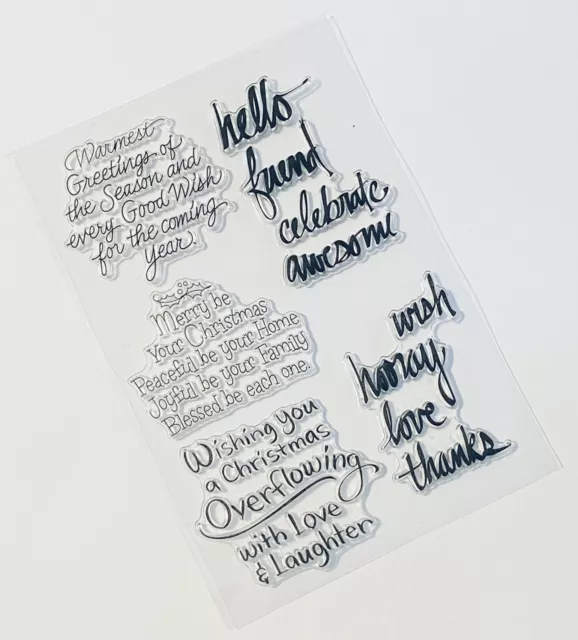 Warmest
Greetings of
the Season and
every Good Wish
for the coming
year.
hello
friend
celebrate
awesome
Merry be
your Christmas
Peaceful be your Home
Joyful be your Family
Blessed be each one.
wish
hooray
love
thanks
Wishing you
a Christmas
Overflowing
with Love
& Laughter